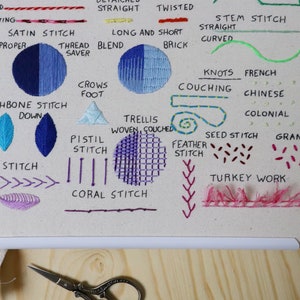 DETACHED
STRAIGHT
TWISTED
STEM STITCH
STRAIGHT
SATIN STITCH
LONG AND SHORT
CURVED
PROPER
THREAD
SAVER
BLEND
BRICK
KNOTS
FRENCH
CROWS
FOOT
COUCHING
CHINESE
COLONIAL
HBONE STITCH
DOWN
TRELLIS
WOVEN COUCHED
PISTIL
STITCH
FEATHER
STITCH
SEED STITCH
GRAN
STITCH
CORAL STITCH
TURKEY WORK